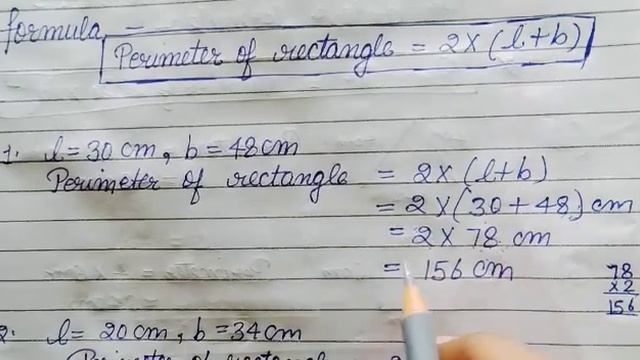 formula -
Perimeter of rectangle = 2 × (l+b)
1. l = 30 cm, b = 48 cm
Perimeter of rectangle = 2 × (l+b)
= 2 × (30 + 48) cm
= 2 × 78 cm
= 156 cm
78
× 2
156
2. l = 20 cm, b = 34 cm